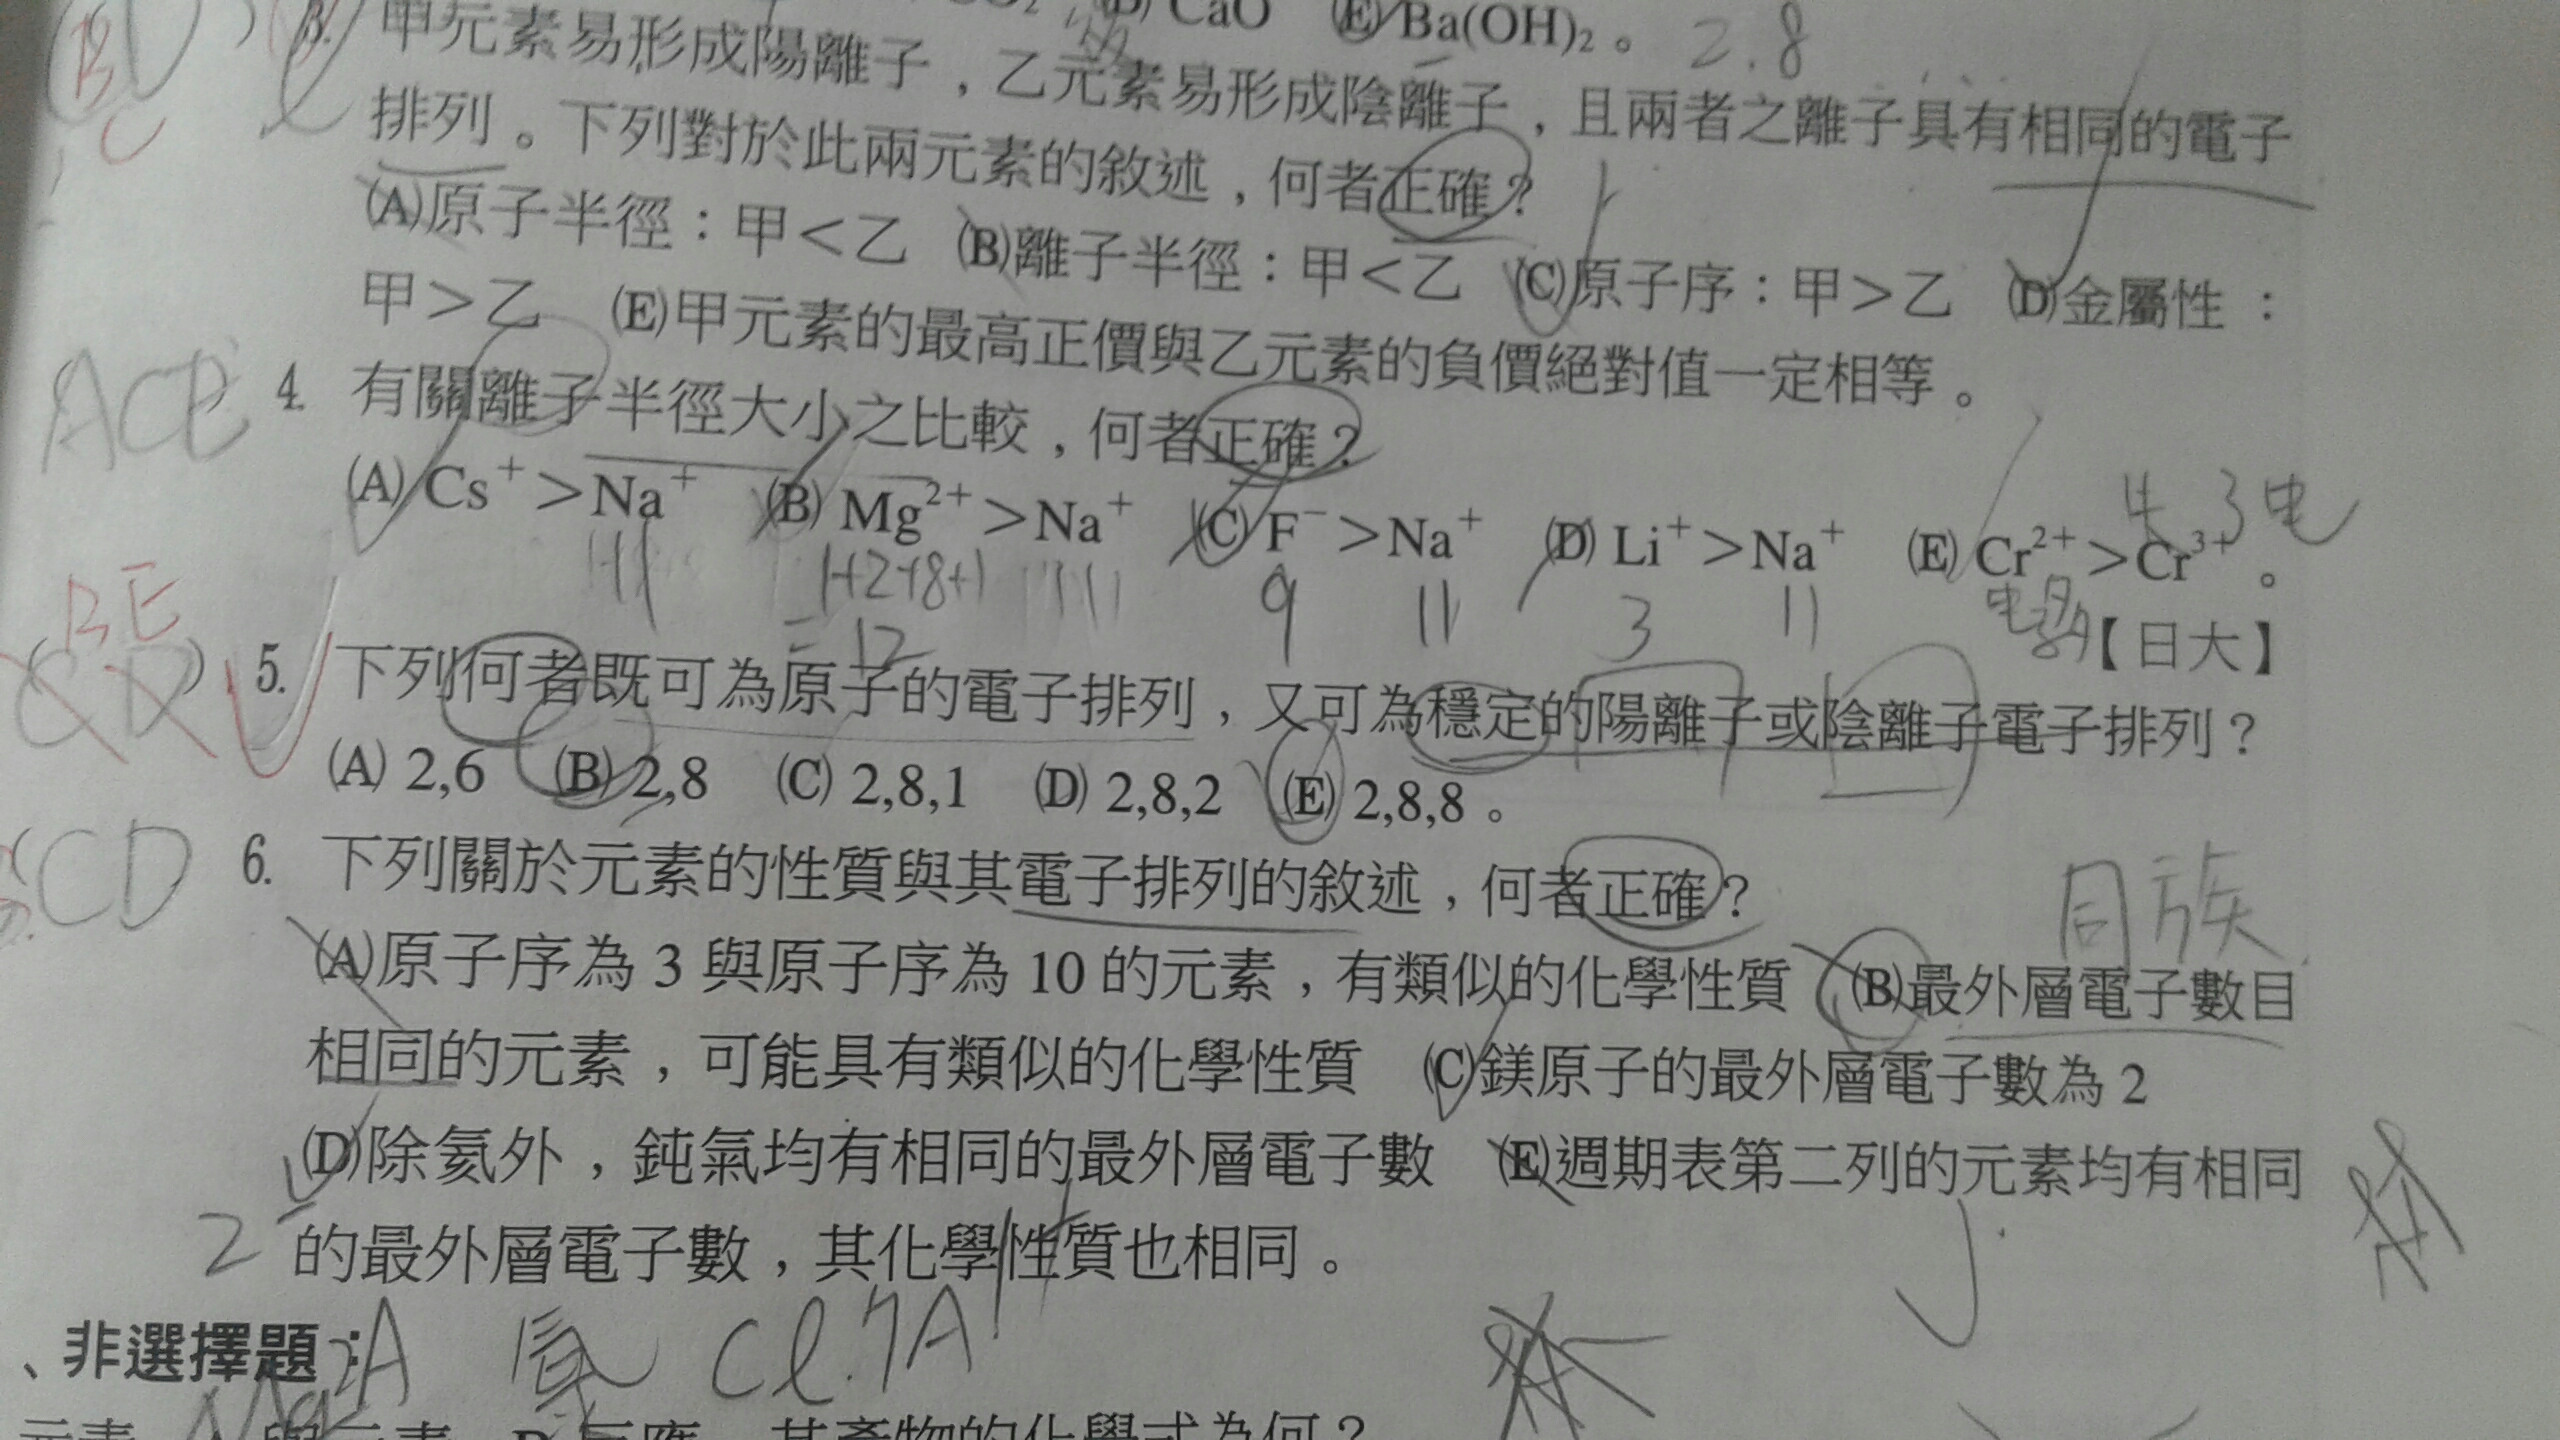 CaO (E) Ba(OH)₂。 2.8
B C
3. 甲元素易形成陽離子，乙元素易形成陰離子，且兩者之離子具有相同的電子
排列。下列對於此兩元素的敘述，何者正確？
(A)原子半徑：甲<乙 (B)離子半徑：甲<乙 (C)原子序：甲>乙 (D)金屬性：
甲>乙 (E)甲元素的最高正價與乙元素的負價絕對值一定相等。
ACE 4. 有關離子半徑大小之比較，何者正確？
(A) Cs⁺>Na⁺ (B) Mg²⁺>Na⁺ (C) F⁻>Na⁺ (D) Li⁺>Na⁺ (E) Cr²⁺>Cr³⁺。
11 1+2+8+1 9 11 3 11
=12 【日大】
BE
CD 5. 下列何者既可為原子的電子排列，又可為穩定的陽離子或陰離子電子排列？
(A) 2,6 (B) 2,8 (C) 2,8,1 (D) 2,8,2 (E) 2,8,8。
CD 6. 下列關於元素的性質與其電子排列的敘述，何者正確？
同族
(A)原子序為 3 與原子序為 10 的元素，有類似的化學性質 (B)最外層電子數目
相同的元素，可能具有類似的化學性質 (C)鎂原子的最外層電子數為 2
(D)除氦外，鈍氣均有相同的最外層電子數 (E)週期表第二列的元素均有相同
2 的最外層電子數，其化學性質也相同。
、非選擇題：
2A Cl 7A
Mg
元素 與元素 B 反應，其產物的化學式為何？